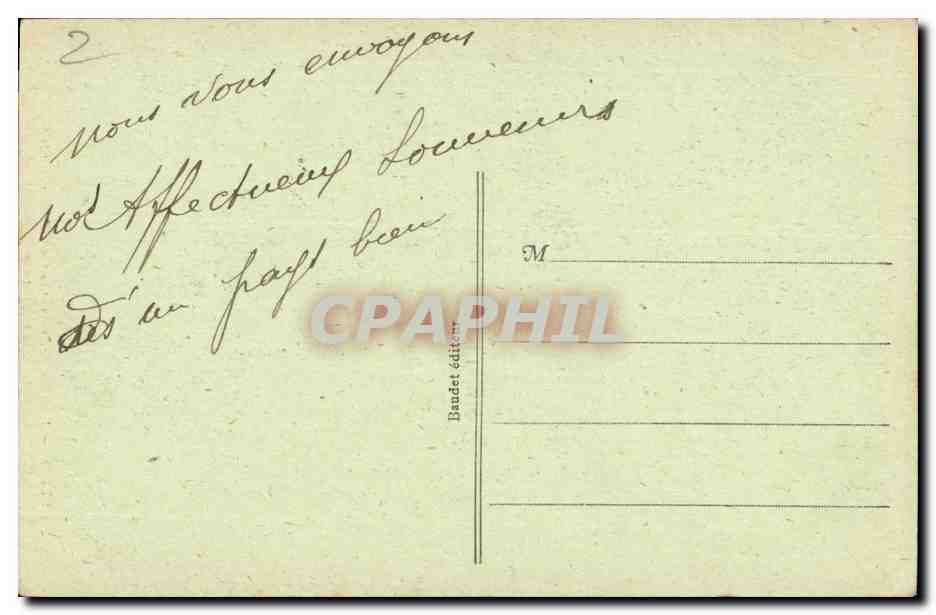 2
nous vous envoyons
nos Affectueux Souvenirs
d'un pays bien
M
Baudet éditeur
CPAPHIL